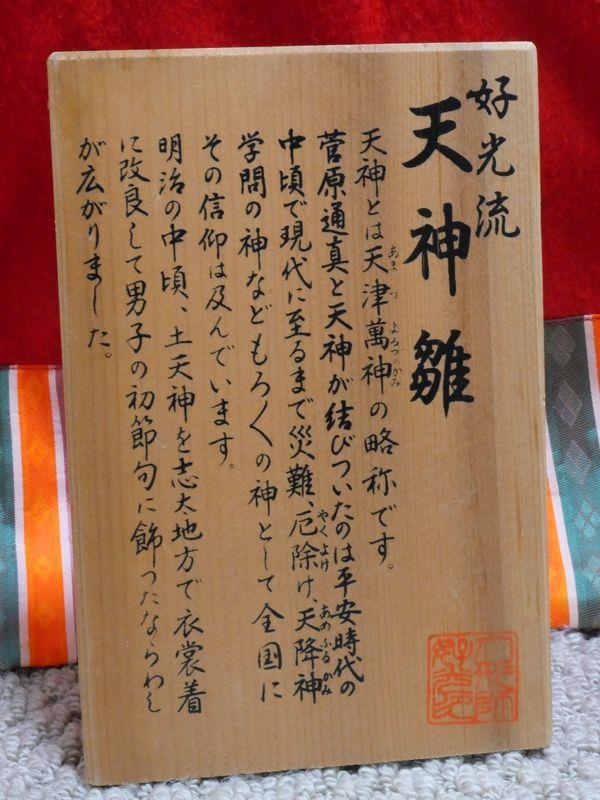 好光流
天神雛
天神とは天津萬神の略称です。
あまつよろづのかみ
菅原通真と天神が結びついたのは平安時代の
中頃で現代に至るまで災難、厄除け、天降神
やくよけ
あめふるかみ
学問の神などもろ〱の神として全国に
その信仰は及んでいます。
明治の中頃、土天神を志太地方で衣裳着
に改良して男子の初節句に飾つたならわし
が広がりました。